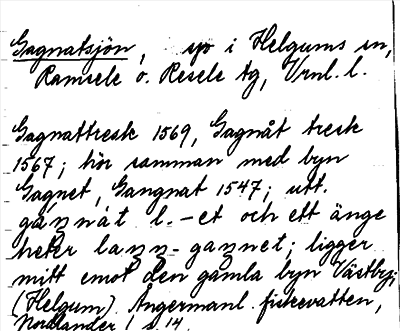 Gagnatsjön, sjö i Helgums sn,
Ramsele o. Resele tg, Vrnl. l.
Gagnattresk 1569, Gagnåt tresk
1567; hör samman med byn
Gagnet, Gangnat 1547; utt.
gaŋnàt l. -et och ett änge
heter laŋŋ-gaŋnet; ligger
mitt emot den gamla byn Västby;
(Helgum) Ångermanl. fiskevatten,
Nordlander, s. 14.